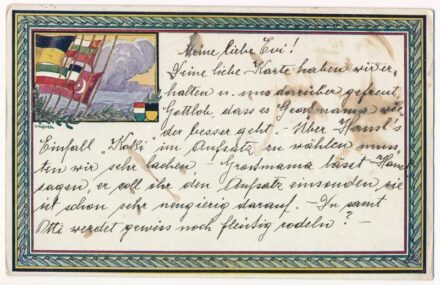 Meine liebe Evi!
Deine liebe Karte haben wir er-
halten u. uns darrüber gefreut,
Gottlob, dass es Grossmama wie-
der besser geht. - Über Hansl's
Einfall „Koki im Aufsatz zu wählen muss-
ten wir sehr lachen! Grossmama lässt Hansl
sagen, er soll ihr den Aufsatz einsenden, sie
ist schon sehr neugierig darauf. - Du samt
Otti werdet gewiss noch fleissig rodeln? -